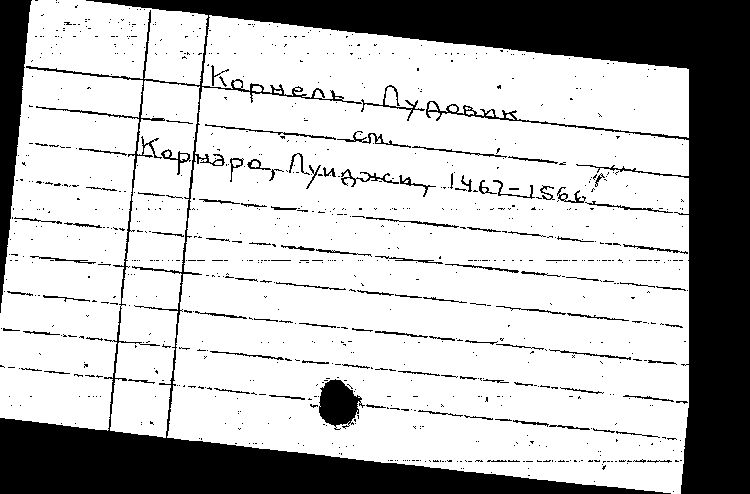 Корнель, Лудовик
см.
Корнаро, Луиджи, 1467-1566.